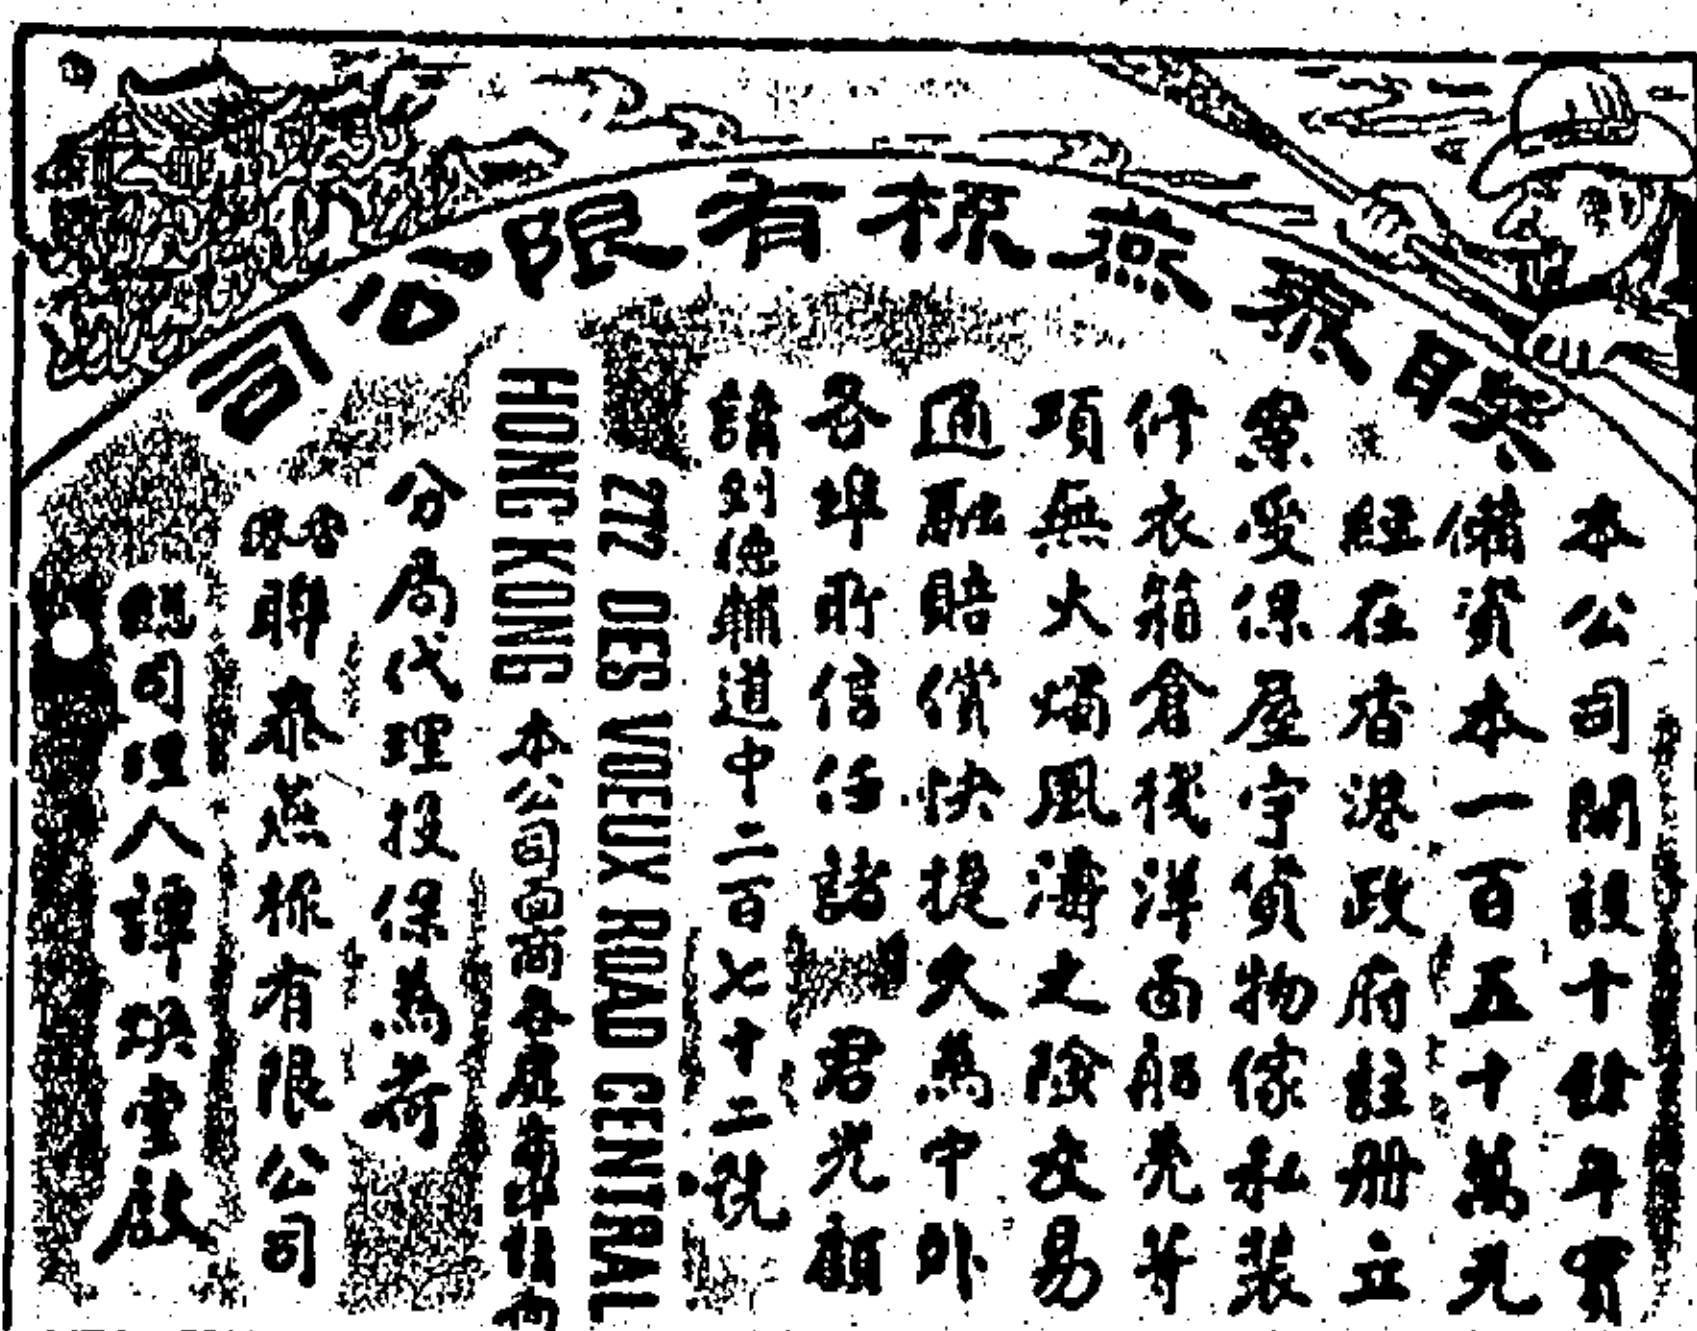 聯泰燕梳有限公司
本公司開設十餘年實
備資本一百五十萬元
經在香港政府註册立
案受保屋宇貨物傢私裝
修衣箱倉棧洋面船売等
項無火燭風濤之險交易
通融賠償快捷久為中外
各埠所信任諸 君光顧
請到德輔道中二百七十二號
272 DES VOEUX ROAD CENTRAL
HONG KONG 本公司 各屋
分局代理投保為荷
香港聯泰燕梳有限公司
總司理人譚煥堂啟